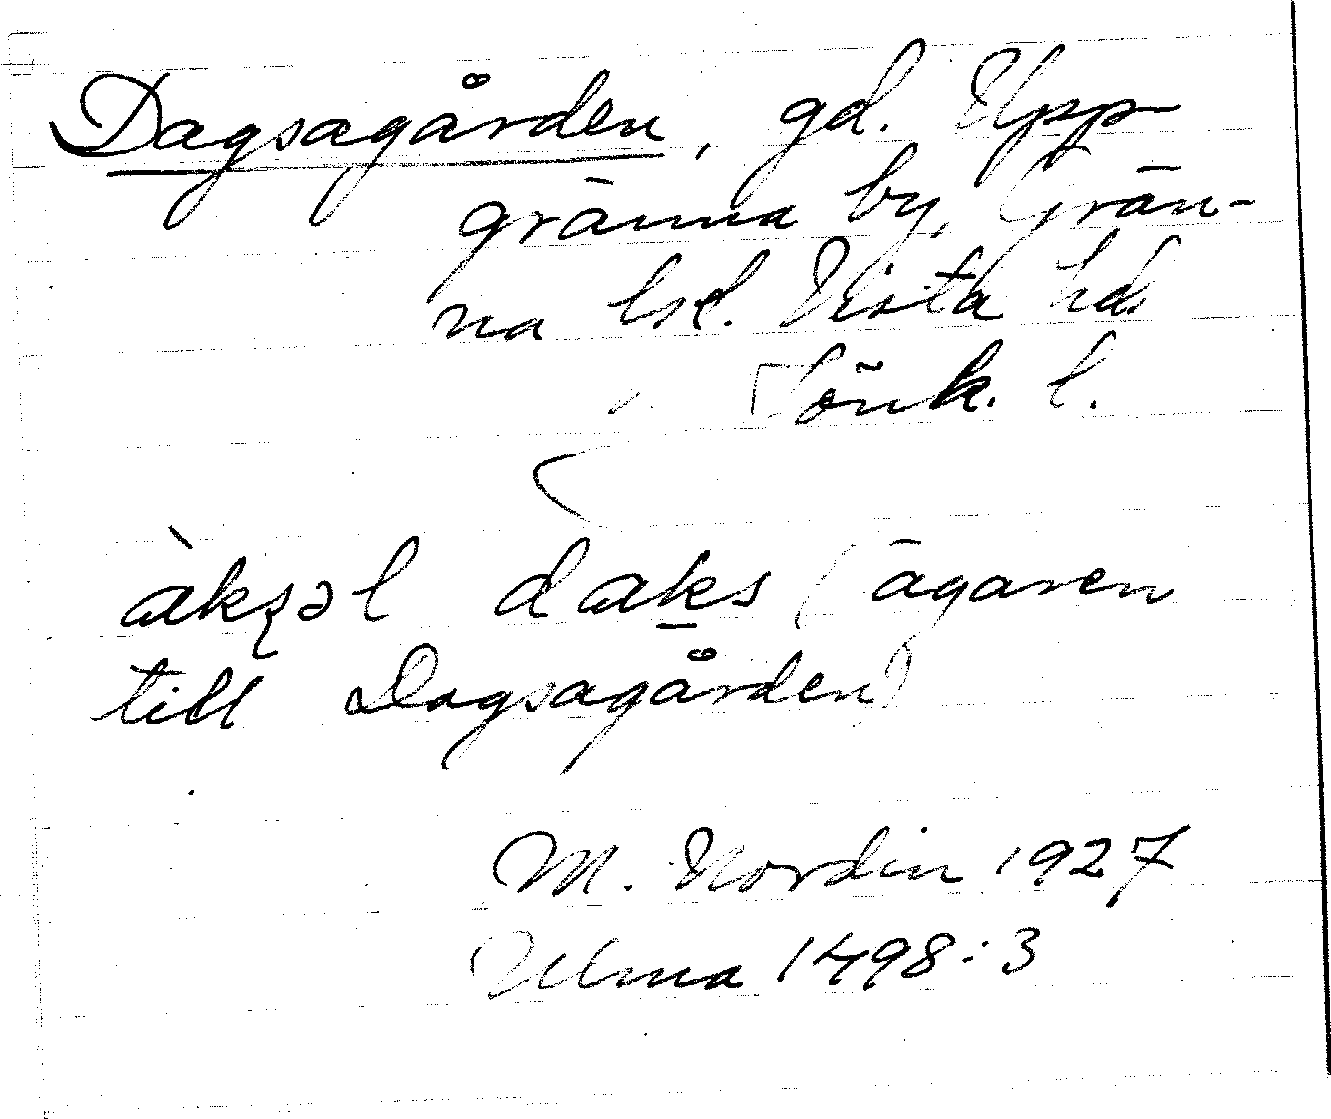 Dagsagården, gd. Upp
gränna by, Grän-
na lsk. Vista hd.
Jönk. l.
àksəl daks (ägaren
till Dagsagården)
M. Nordin 1927
Ulma 1498:3